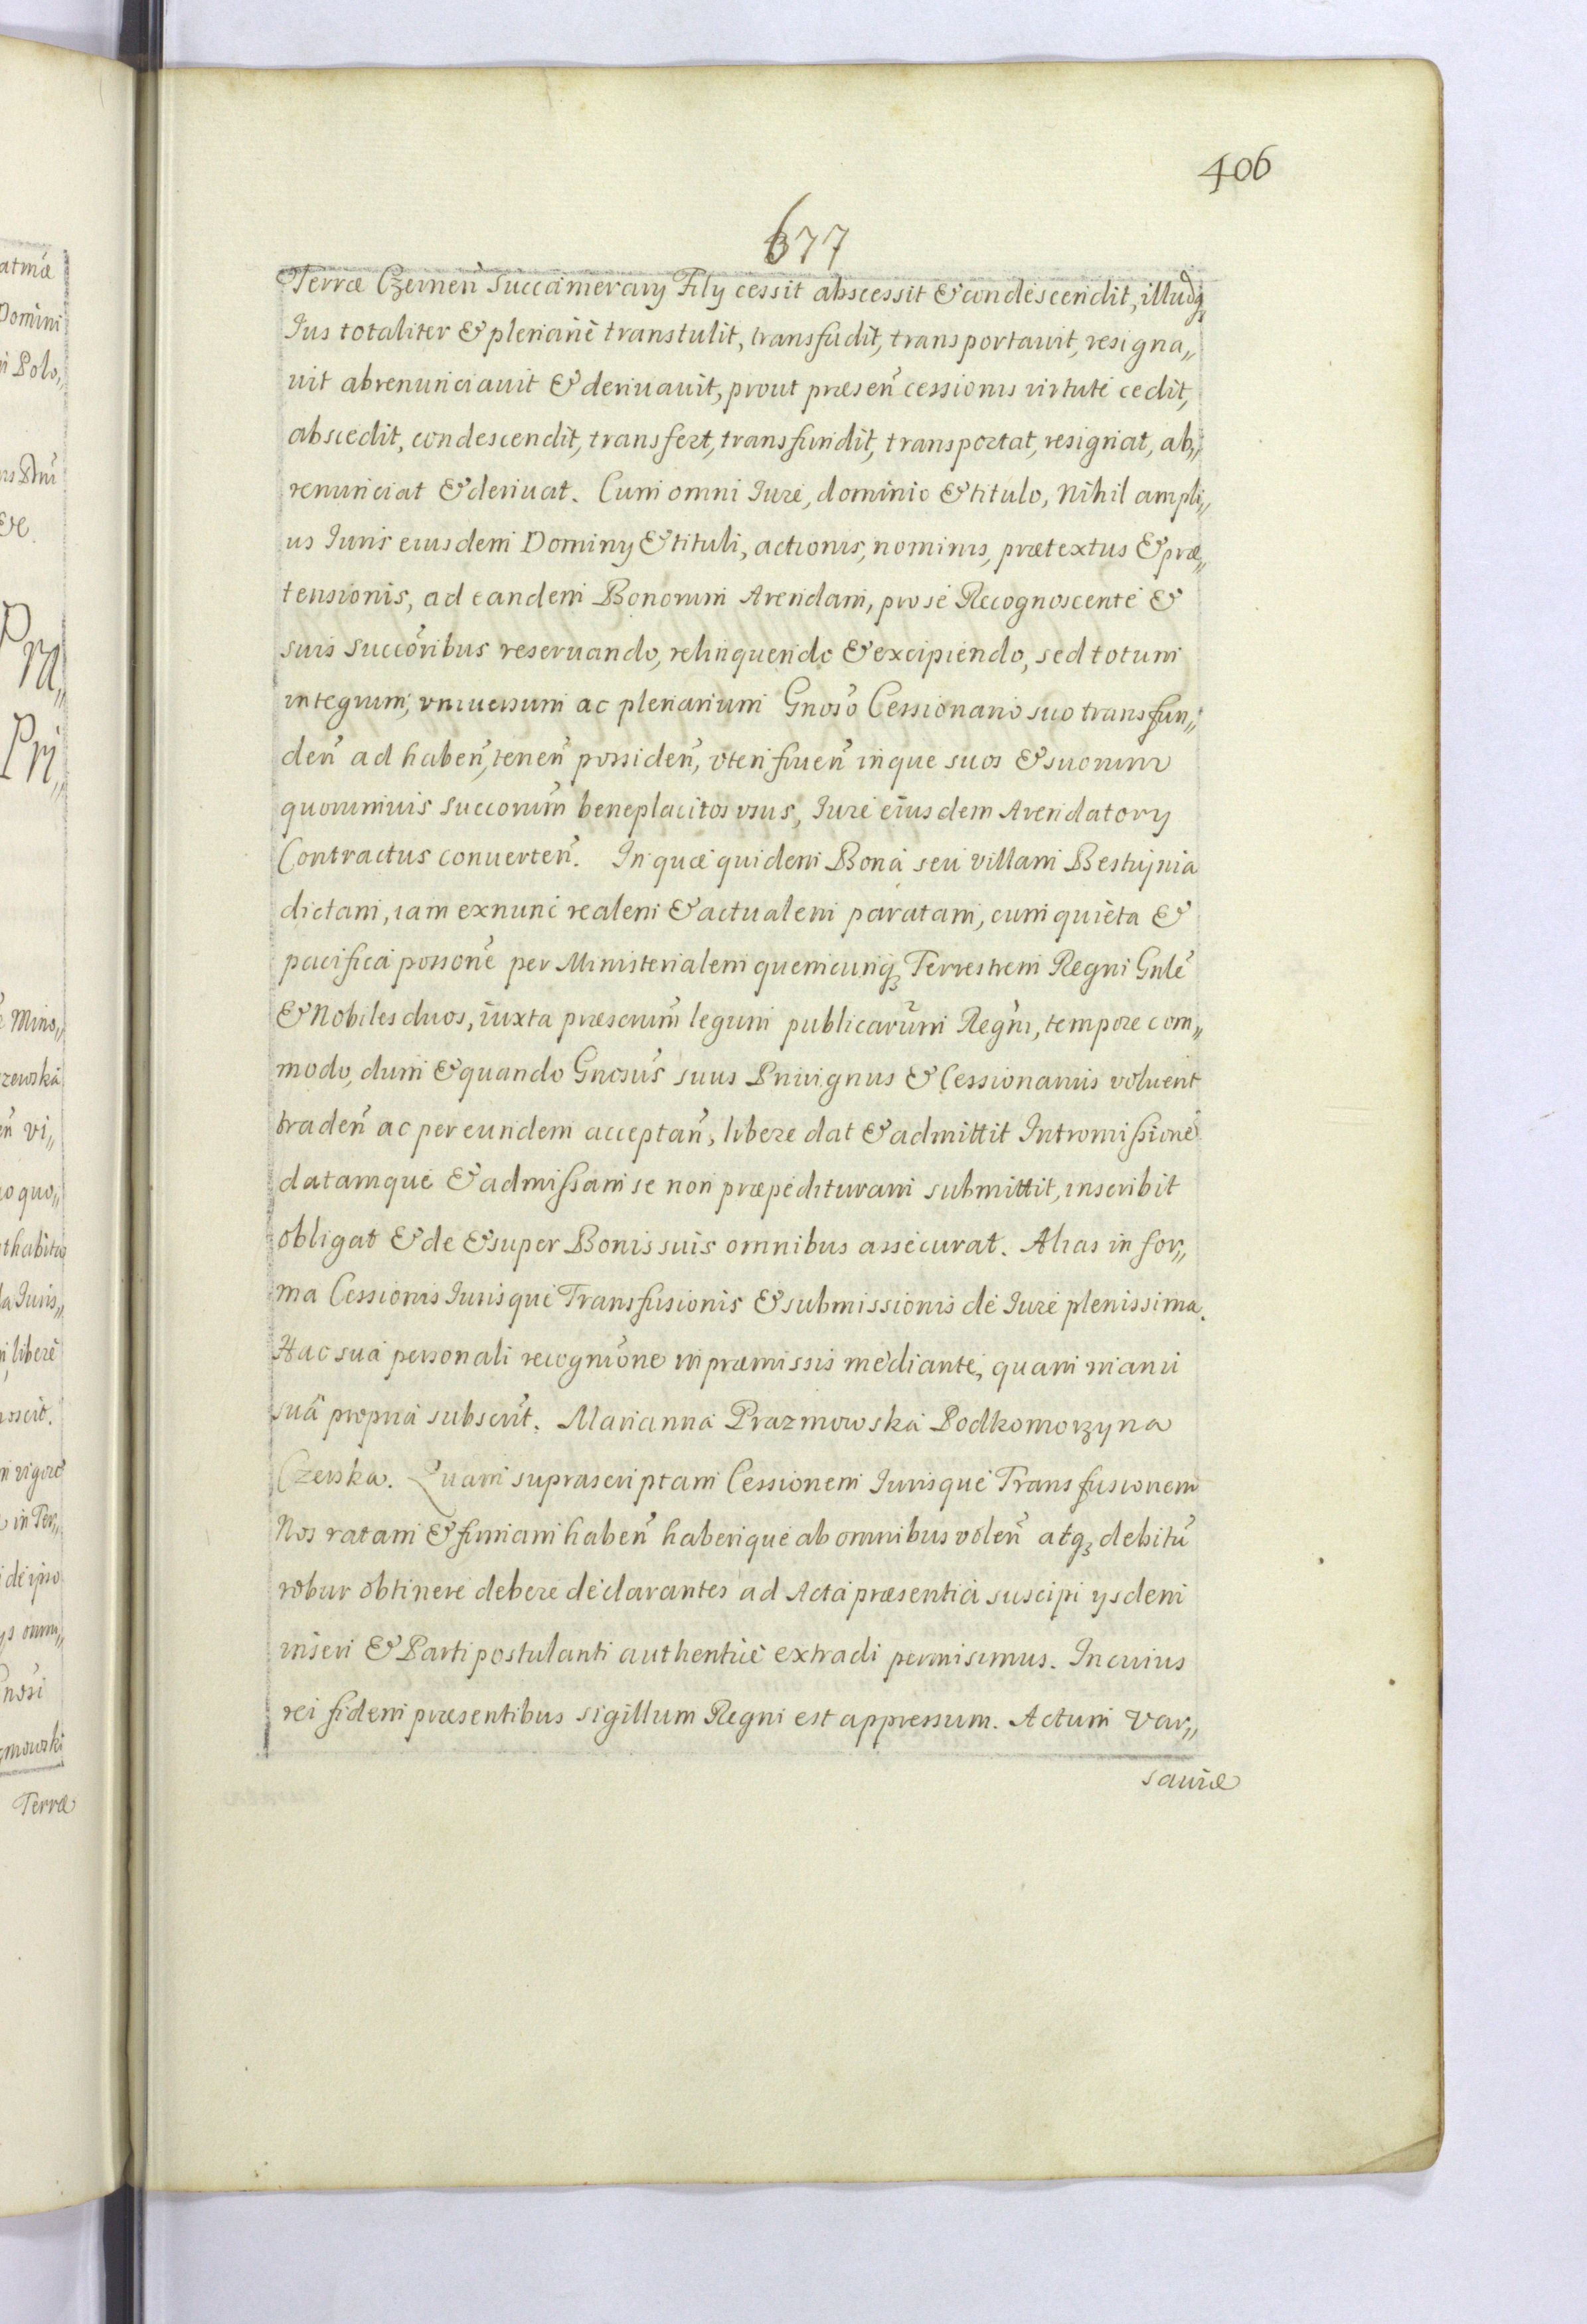 406
677
Terræ Czernen̄ Succamerarÿ Filÿ cessit abscessit & condescendit, illudq₃
Ius totaliter & plenariè transtulit, transfudit, transportavit, resigna„
uit abrenunciauit & deriuauit, prout præsen̄ cessionis virtute cedit,
abscedit, condescendit, transfert, transfundit, transportat, resignat, ab„
renunciat & deriuat. Cum omni Iure, dominio & titulo, Nihil ampli„
us Iuris eiusdem Dominÿ & tituli, actionis, nominis, prætextus & præ„
tensionis, ad eandem Bonorum Arendam, pro se Recognoscente &
suis succōribus reseruando, relinquendo & excipiendo, sed totum
integrum, vniuersum ac plenarium Gnōso Cessionario suo transfun„
den̄ ad haben̄, tenen̄ possiden̄, vten̄ fruen̄ inque suos & suorum
quorumuis succorum̄ beneplacitos vsus, Iure eiusdem Arendatorÿ
Contractus conuerten̄. In quæ quidem Bona seu villam Bestwjnia
dictam, iam exnunc realem & actualem paratam, cum quieta &
pacifica possōne per Ministerialem quemcunq₃ Terrestrem Regni Gnlē
& Nobiles duos, iuxta præscrum̄ legum publicarum Regni, tempore com„
modo, dum & quando Gnosus̄ suus Priuignus & Cessionarius voluerit
traden̄ ac per eundem acceptan̄, libere dat & admittit Intromissionē
datamque & admissam se non præpedituram submittit, inscribit
obligat & de & super Bonis suis omnibus assecurat. Alias in for„
ma Cessionis Iurisque Transfusionis & submissionis de Iure plenissima.
Hac sua personali recognōne in præmissis mediante, quam manu
suâ propria subscrit̄. Marianna Prazmowska Podkomorzyna
Czerska. Quam suprascriptam Cessionem Iurisque Transfusionem
Nos ratam & firmam haben̄ haberique ab omnibus volen̄ atq₃ debitū
robur obtinere debere declarantes ad Acta præsentia suscipi ÿsdem
inseri & Parti postulanti authenticè extradi permisimus. In cuius
rei fidem præsentibus sigillum Regni est appressum. Actum Var„
sauiæ
atmæ
Domini
Polo„
Pri„
Mino„
zewska
vi„
quo„
Iuris„
liberè
in Ter„
de ipso
Gnosi
Terræ